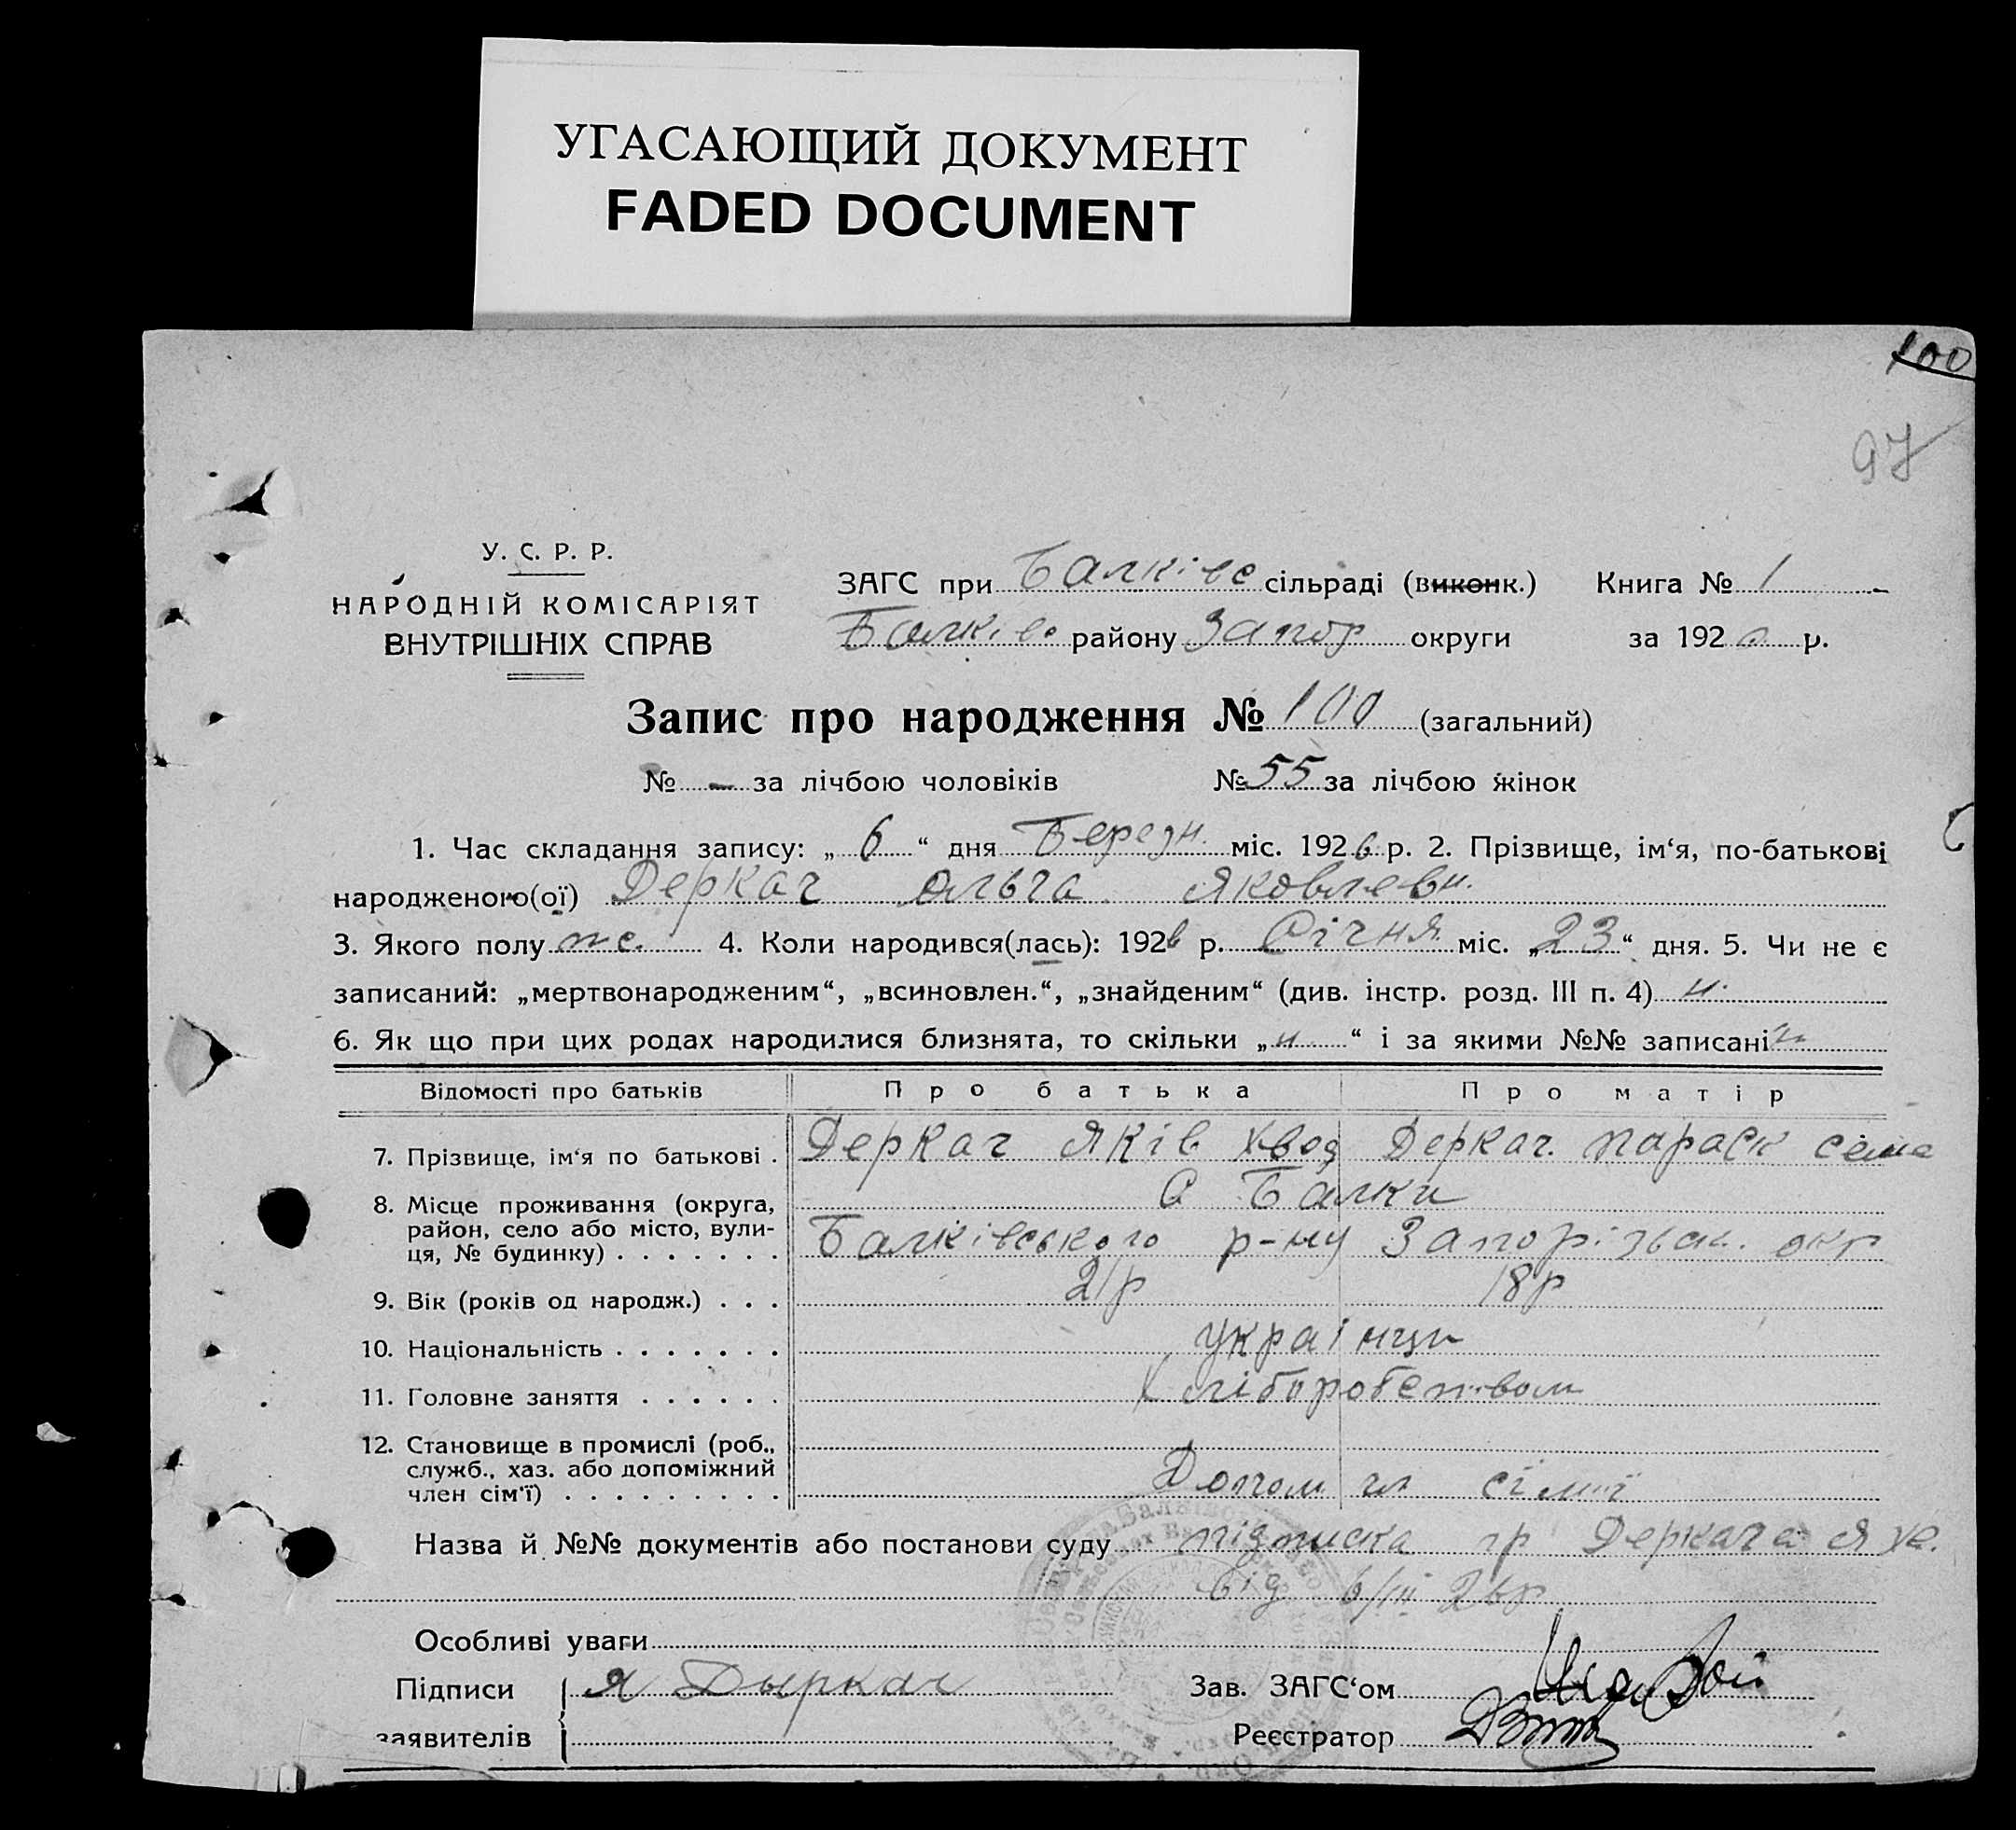 УГАСАЮЩИЙ ДОКУМЕНТ
FADED DOCUMENT
100
97
У. С. Р. Р.
НАРОДНІЙ КОМІСАРІЯТ
ВНУТРІШНІХ СПРАВ
ЗАГС при Балківс сільраді (виконк.) Книга № 1
Балків району Запор округи за 192 р.
Запис про народження № 100 (загальний)
№ – за лічбою чоловіків № 55 за лічбою жінок
1. Час складання запису: „ 6 “ дня Березн. міс. 1926 р. 2. Прізвище, ім‘я, по-батькові
народженого(ої) Деркач Ольга Яковлевн.
3. Якого полу же. 4. Коли народився(лась): 1926 р. Січня міс. „ 23 “ дня. 5. Чи не є
записаний: „мертвонародженим“, „всиновлен.“, „знайденим“ (див. інстр. розд. III п. 4) н.
6. Як що при цих родах народилися близнята, то скільки „ н “ і за якими №№ записані н
Відомості про батьків Про батька Про матір
7. Прізвище, ім‘я по батькові . Деркач Яків Хвод Деркач. Параск Семе
8. Місце проживання (округа, С Балки
район, село або місто, вули-
ця, № будинку) . . . . . . . Балківського р-ну Запорізьк. окр
9. Вік (років од народж.) . . . 21р 18р
10. Національність . . . . . . . українци
11. Головне заняття . . . . . . Хліборобством
12. Становище в промислі (роб.,
служб., хаз. або допоміжний
член сім‘ї) . . . . . . . . . Допом чл сїмїї
Назва й №№ документів або постанови суду підписка гр Деркача Я Хв.
від 6/III 26р
Особливі уваги
Підписи Я Дыркач Зав. ЗАГС‘ом
заявителів Реєстратор